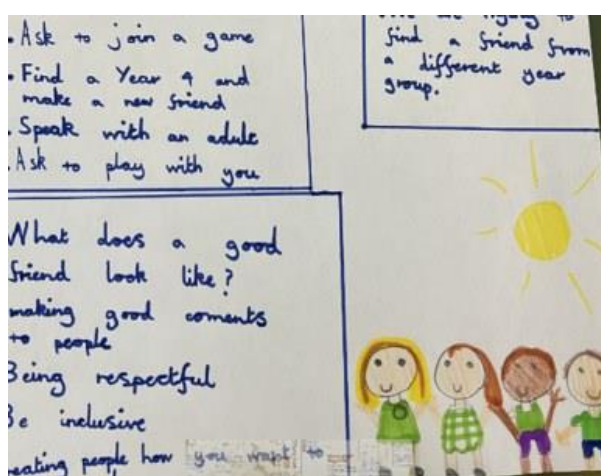 . Ask to join a game
. Find a Year 4 and
make a new friend
. Speak with an adult
. Ask to play with you
to
find a friend from
a different year
group.
What does a good
friend look like?
making good coments
to people
Being respectful
Be inclusive
eating people how you want to